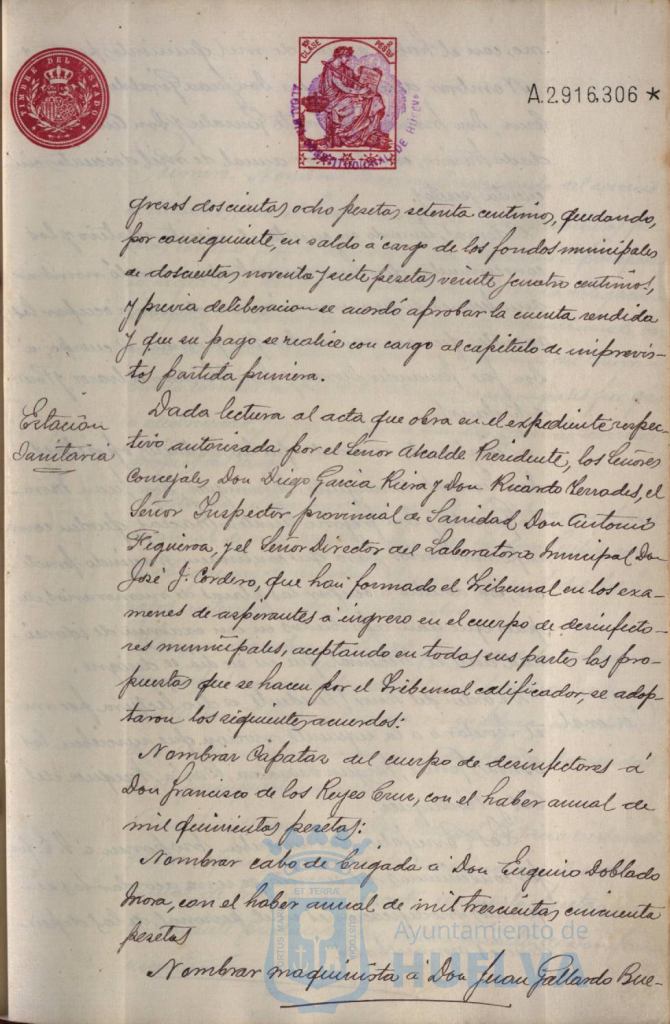 TIMBRE DEL ESTADO
CLASE
PESETA
ALCALDIA CONSTITUCIONAL DE HUELVA
A.2.916.306 *
gresos doscientas ocho pesetas setenta centimos, quedando,
por consiguiente, un saldo á cargo de los fondos municipales
de doscientas noventa y siete pesetas veinte y cuatro centimos,
y previa deliberacion se acordó aprobar la cuenta rendida
y que su pago se realice con cargo al capitulo de imprevis-
tos partida primera.
Estación
Sanitaria
Dada lectura al acta que obra en el expediente respec-
tivo autorizada por el Señor Alcalde Presidente, los Señores
Concejales Don Diego Garcia Riera y Don Ricardo Terrades, el
Señor Inspector provincial de Sanidad Don Antonio
Figueroa, y el Señor Director del Laboratorio Municipal Don
José J. Cordero, que han formado el Tribunal en los exa-
menes de aspirantes á ingreso en el cuerpo de desinfecto-
res municipales, aceptando en todas sus partes las pro-
puestas que se hacen por el Tribunal calificador, se adop-
taron los siguientes acuerdos:
Nombrar Capataz del cuerpo de desinfectores á
Don Francisco de los Reyes Cruz, con el haber anual de
mil quinientas pesetas:
Nombrar cabo de brigada á Don Eugenio Doblado
Mora, con el haber anual de mil trescientas cincuenta
pesetas
Nombrar maquinista á Don Juan Gallardo Bue-
ET TERRAE
PORTUS MARIS
CUSTODIA
Ayuntamiento de
HUELVA